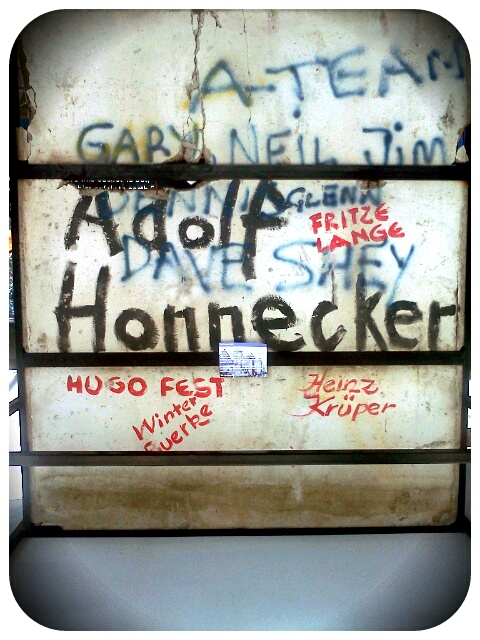 A-TEAM
GARY, NEIL JIM
DENNIS GLENN
Adolf
FRITZE
LANGE
DAVE SHEY
Honnecker
HUGO FEST
Heinz
Krüper
Winter